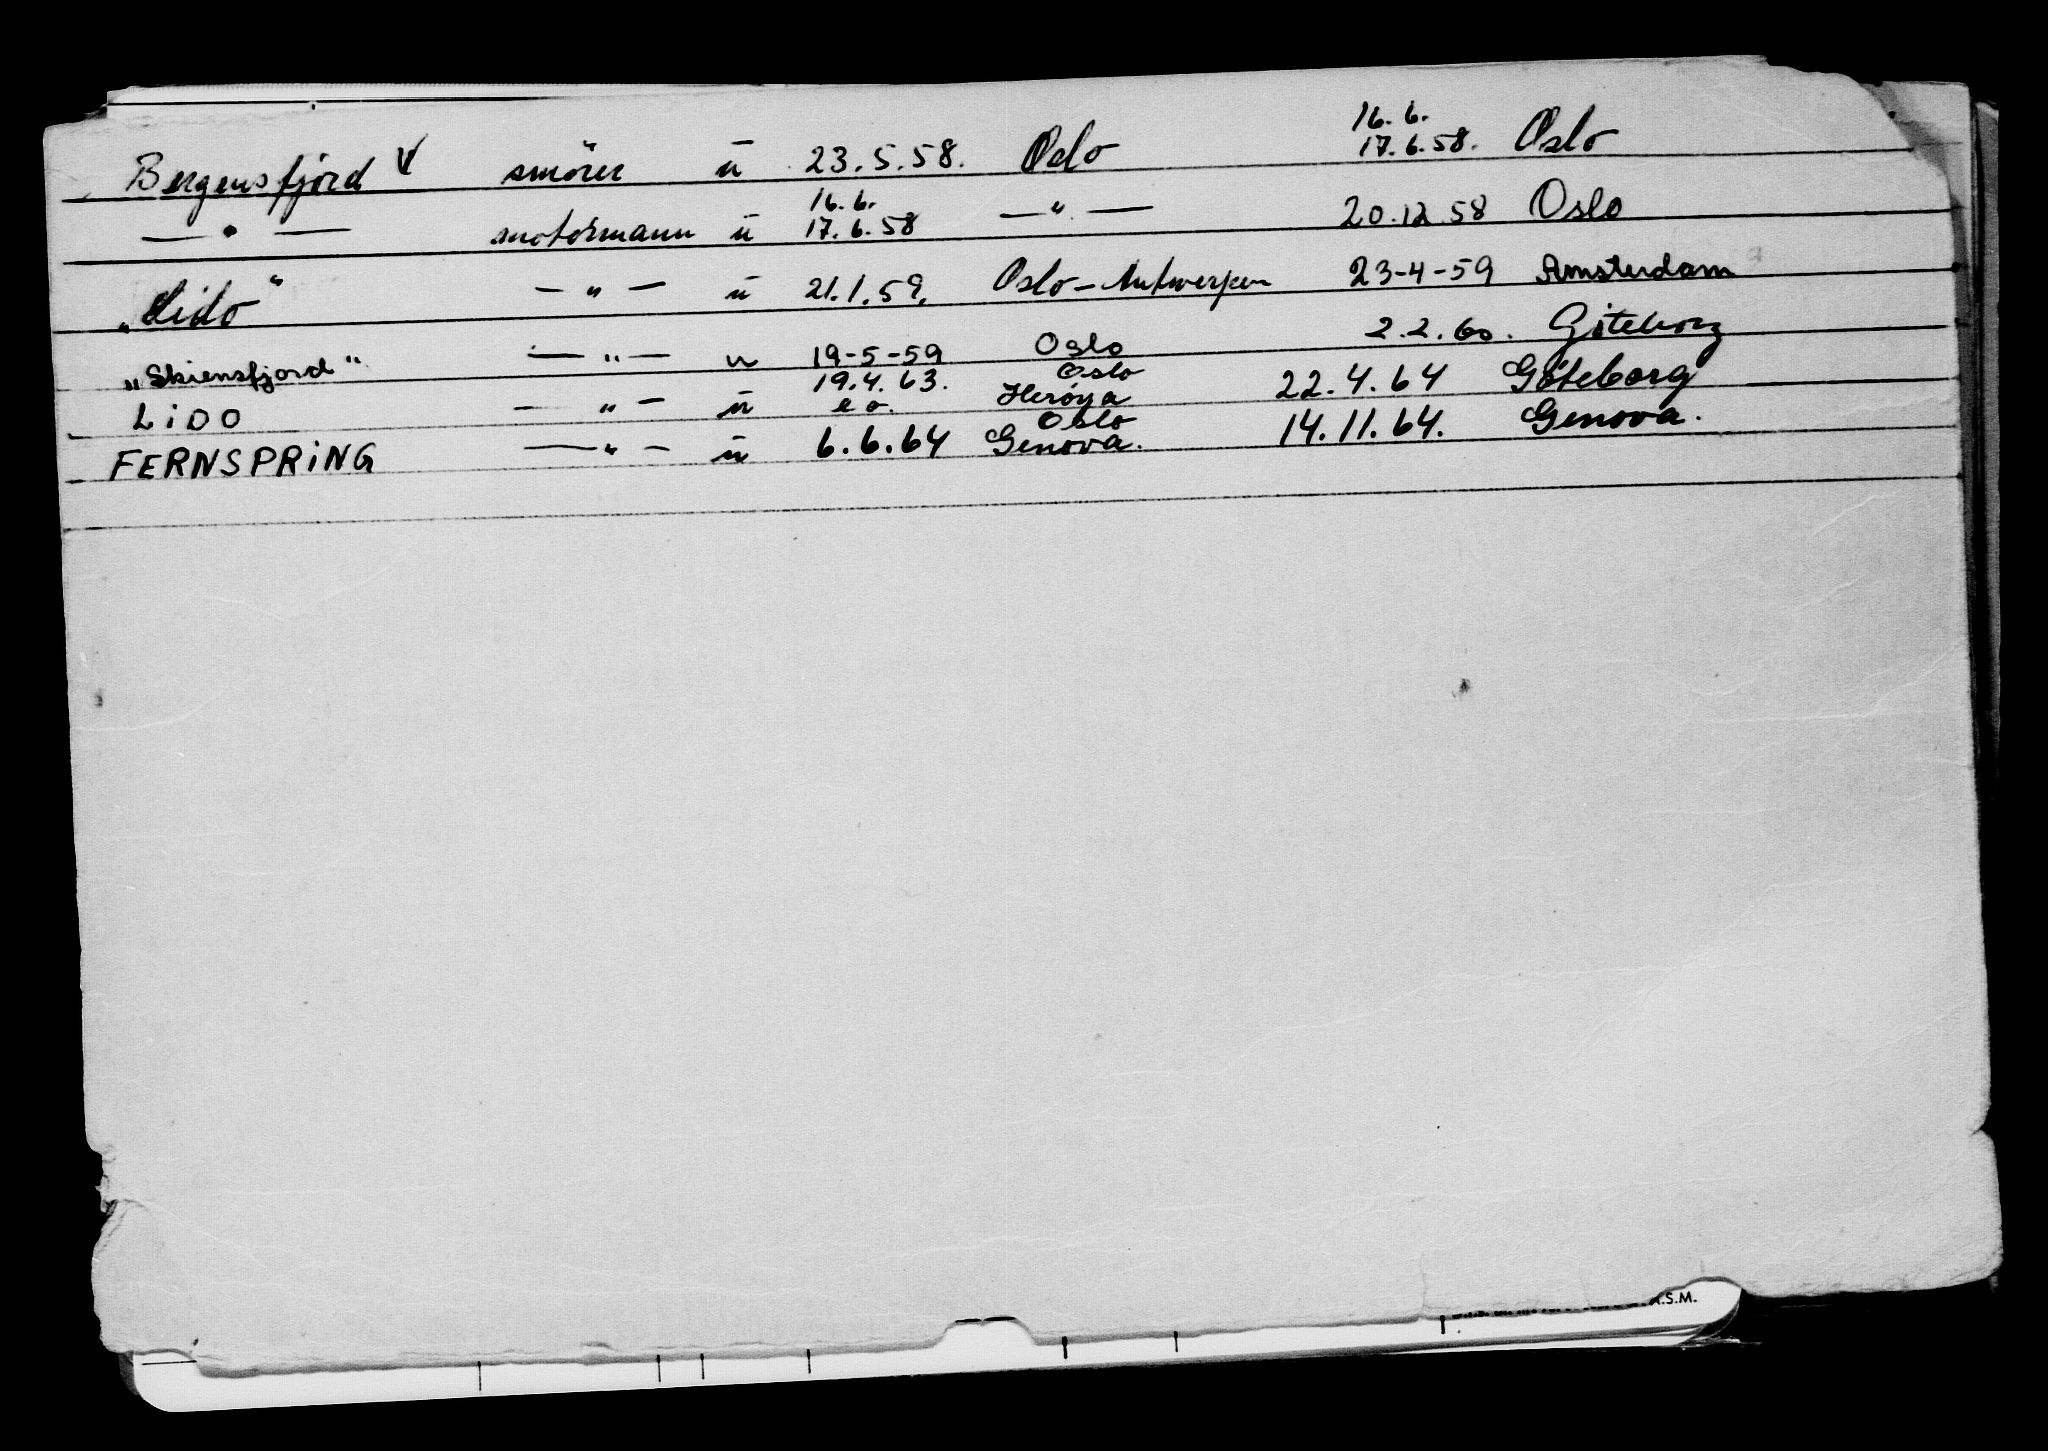 Bergensfjord V smörer ü 23.5.58. Oslo 16.6. 17.6.58. Oslo
— " — motormann ü 16.6. 17.6.58 — " — 20.12 58 Oslo
"Lido" — " — ü 21.1.59. Oslo-Antwerpen 23-4-59 Amsterdam
"Skiensfjord" — " — u 19-5-59 Oslo 2.2.60. Göteborg
LiDO — " — ü 19.4.63. e o. Oslo Herøya 22.4.64 Göteborg
FERNSPRiNG — " — ü 6.6.64 Oslo Genova. 14.11.64. Genova.
.S.M.